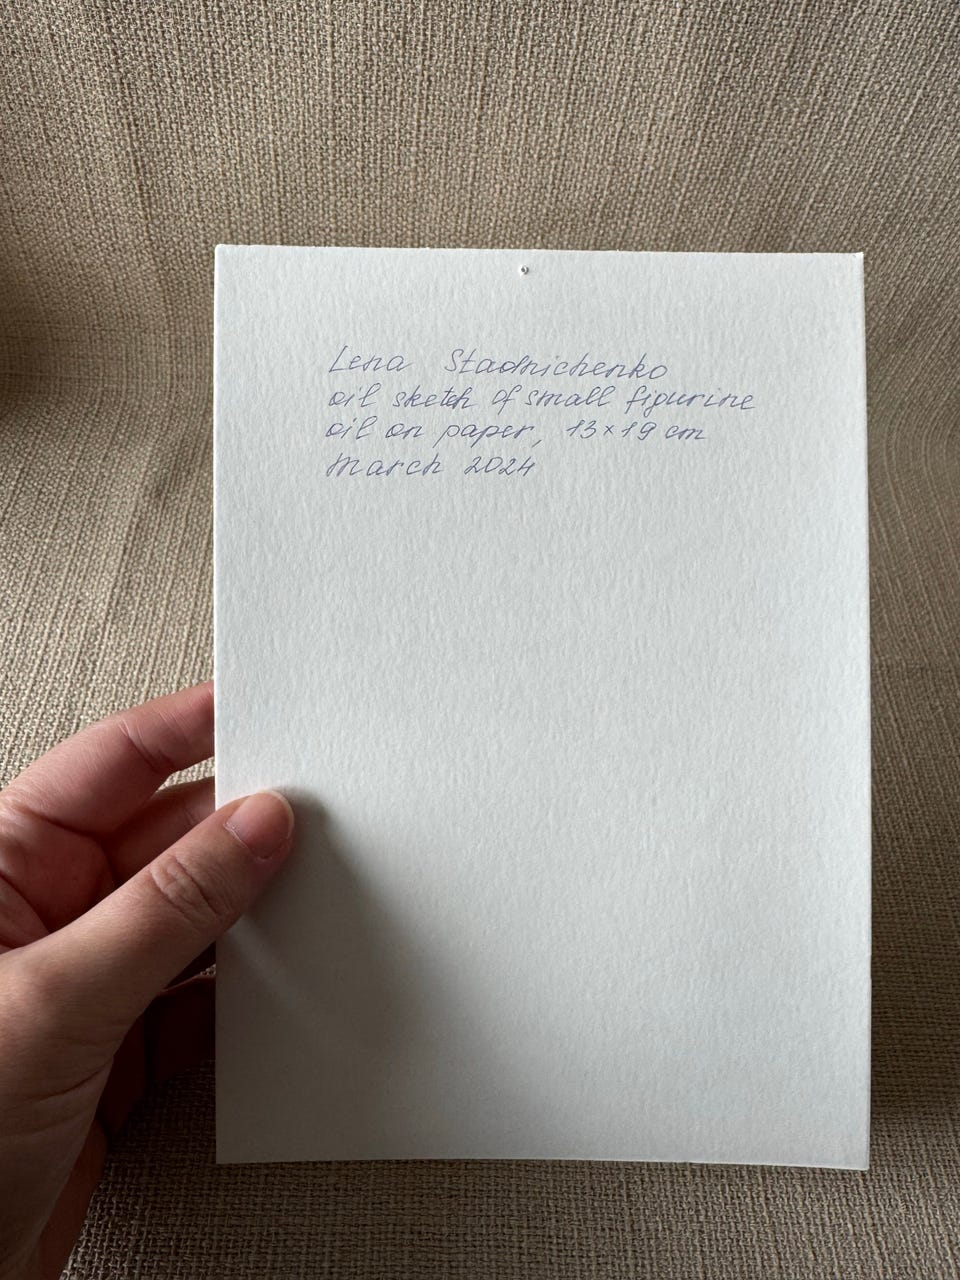 Lena Stadnichenko
oil sketch of small figurine
oil on paper, 13×19 cm
March 2024